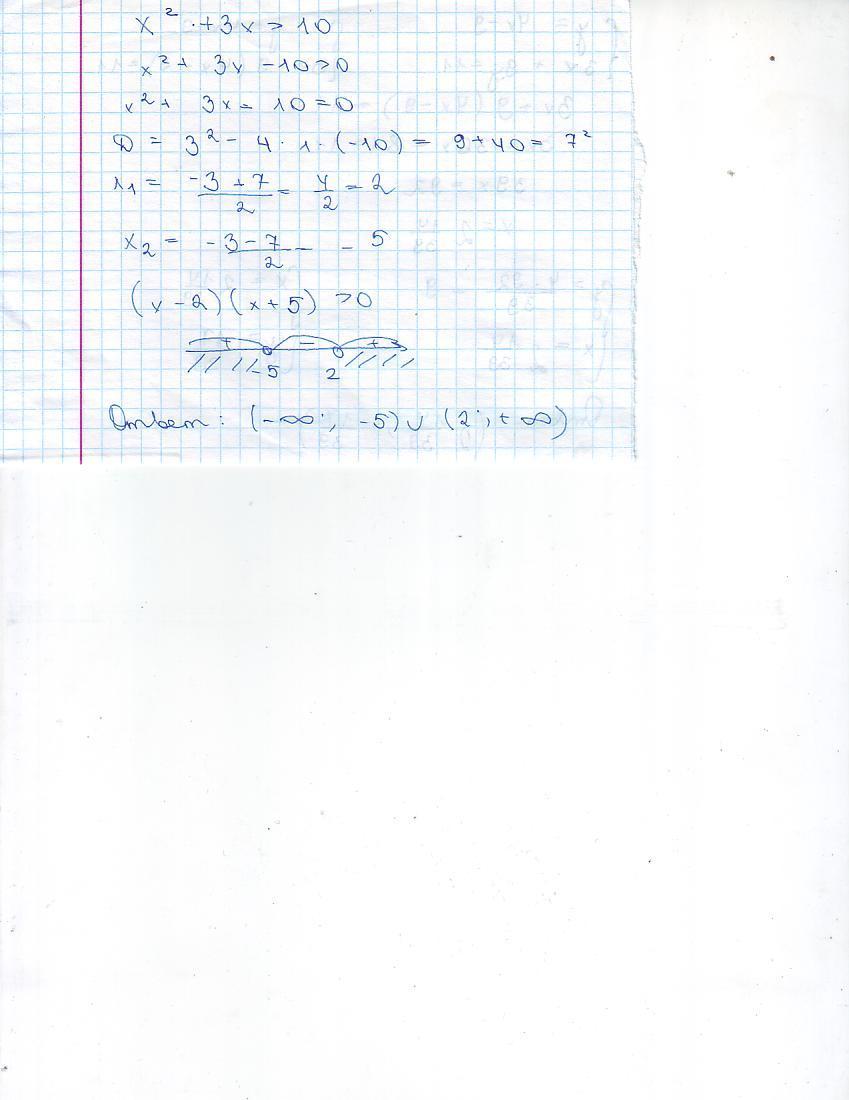 x² + 3x > 10
x² + 3x - 10 > 0
x² + 3x - 10 = 0
D = 3² - 4 · 1 · (-10) = 9 + 40 = 7²
x₁ = (-3 + 7)/2 = 4/2 = 2
x₂ = (-3 - 7)/2 = - 5
(x - 2)(x + 5) > 0
+ - +
-5 2
Ответ: (-∞; -5) ∪ (2; +∞)